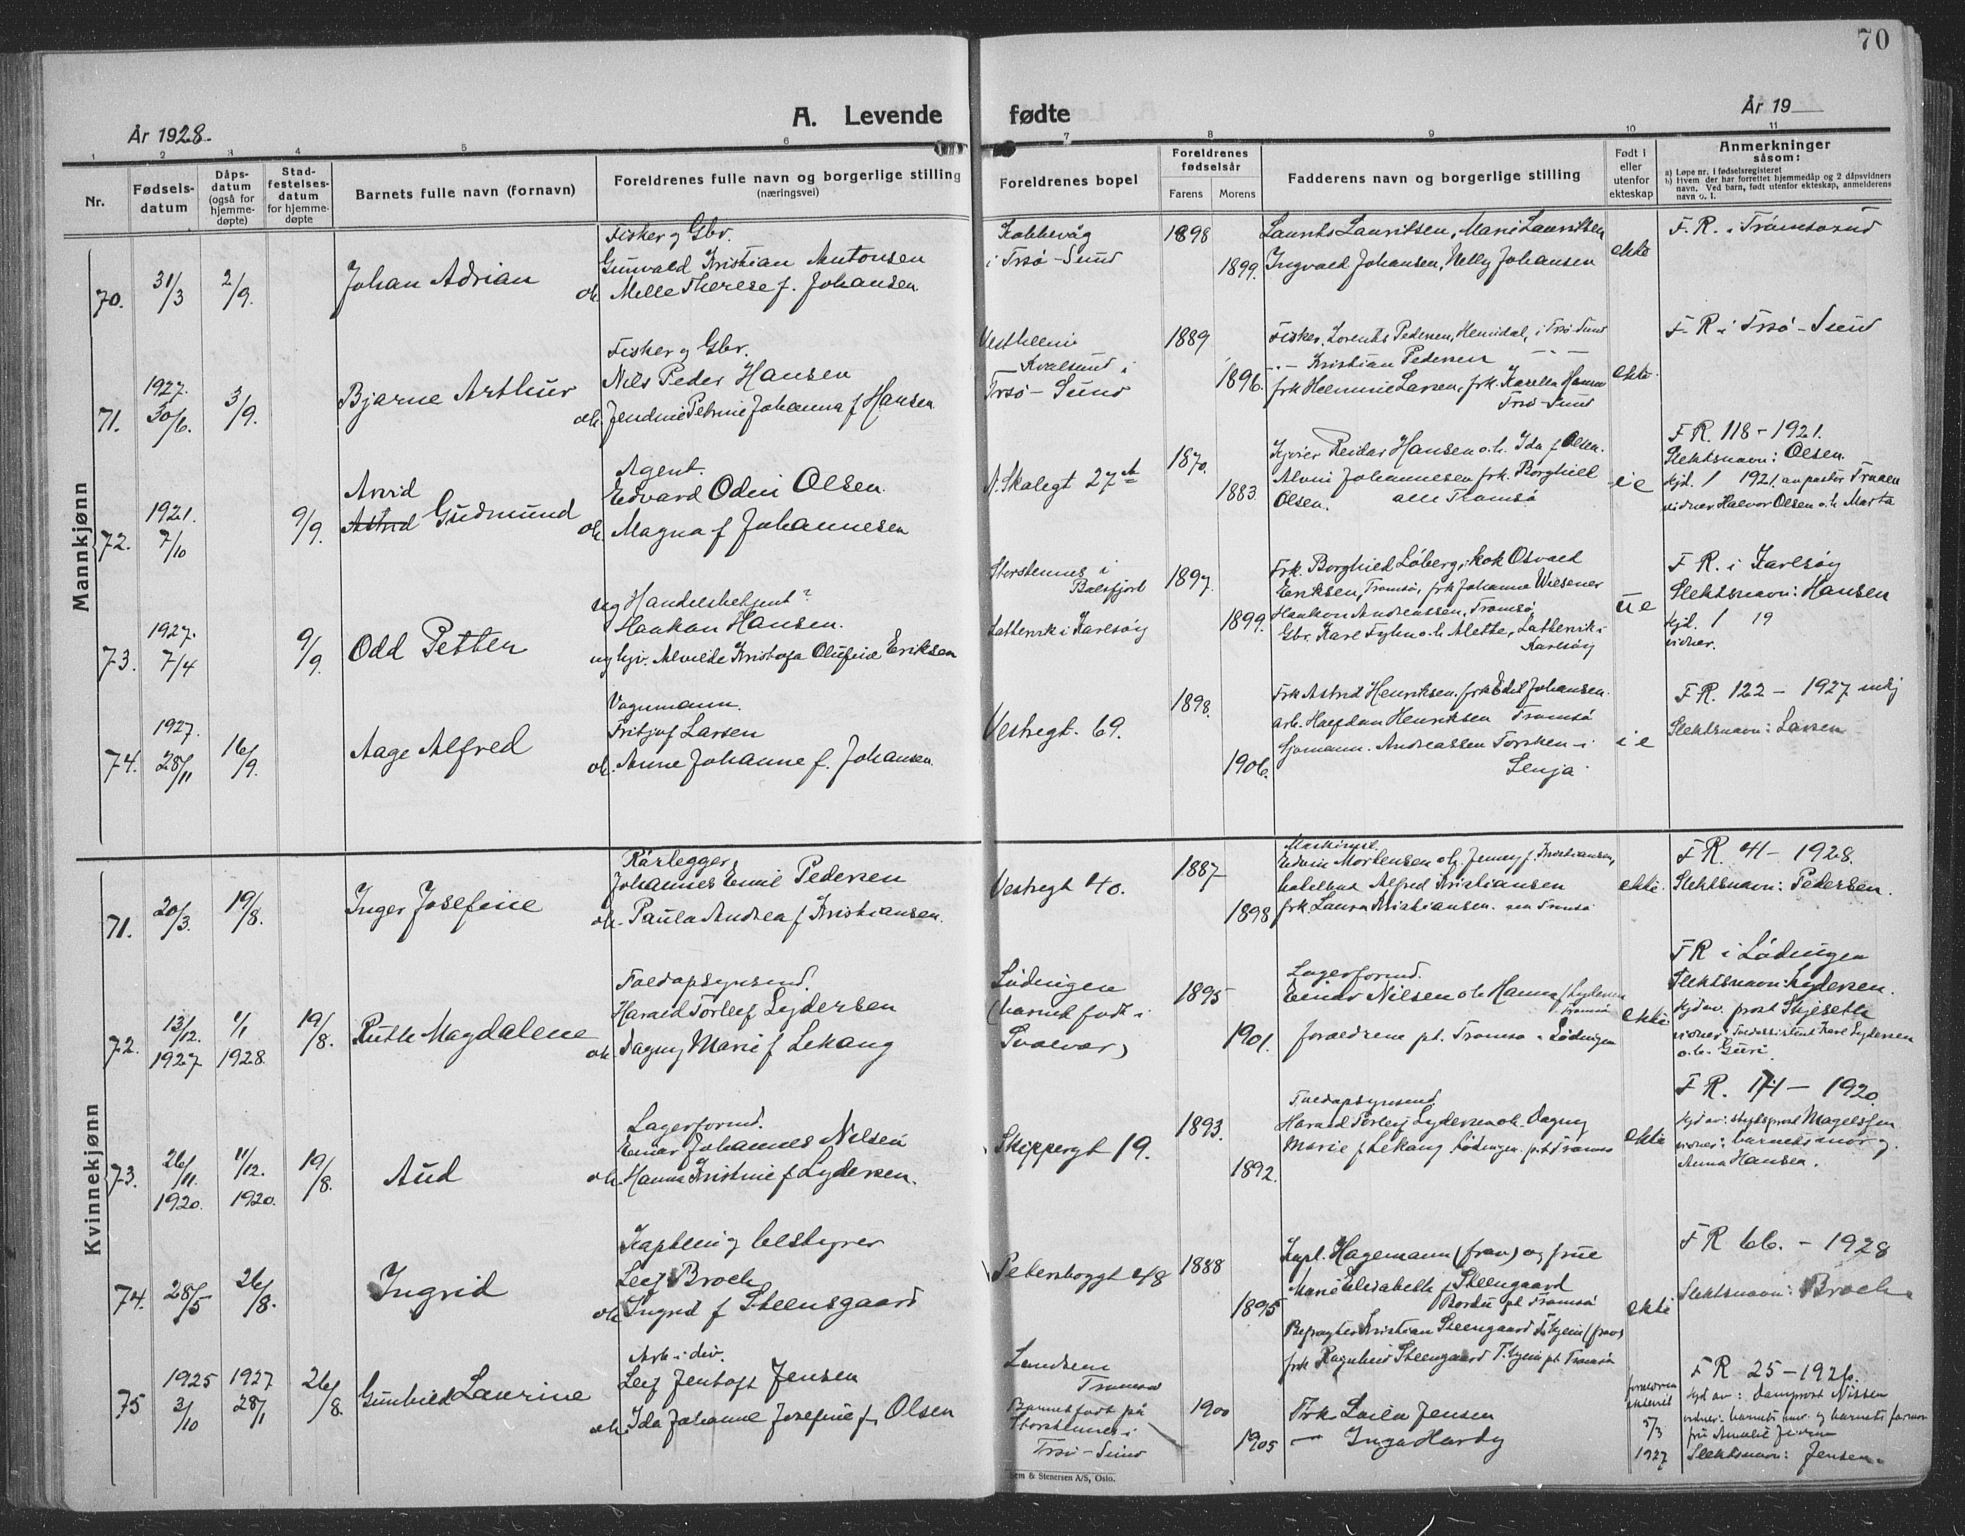 70
A. Levende fødte
År 1928.
År 19
1 2 3 4 5 6 7 8 9 10 11
Nr.
Fødsels-
datum
Dåps-
datum
(også for
hjemme-
døpte)
Stad-
festelses-
datum
for hjemme-
døpte
Barnets fulle navn (fornavn)
Foreldrenes fulle navn og borgerlige stilling
(næringsvei)
Foreldrenes bopel
Foreldrenes
fødselsår
Farens Morens
Fadderens navn og borgerlige stilling
Født i
eller
utenfor
ekteskap
Anmerkninger
såsom:
a) Løpe nr. i fødselsregisteret
b) Hvem der har forrettet hjemmedåp og 2 dåpsvidners
navn. Ved barn, født utenfor ekteskap, anmelderens
navn o. l.
Mannkjønn
70. 31/3 2/9. Johan Adrian
Fisker og Gbr.
Gunvald Kristian Antonsen
oh. Mille Therese f. Johansen
Kobbevåg
i Trsø-Sund
1898
1899.
Laurits Lauritsen, Marie Lauritsen
Ingvald Johansen, Nelly Johansen
ekte
F. R. i Tromsøsund
71. 1927. 30/6. 3/9. Bjarne Arthur
Fisker og Gbr.
Nils Peder Hansen
oh. Jendine Petrine Johanna f Hansen
Kvalsund i
Trsø-Sund
1889
1896.
Fisker Lorents Pedersen, i Trsø Sund
Kristian Pedersen
frk Helmine Larsen, frk.
Trsø-Sund
ekte.
F. R. i Trsø-Sund
72. 1921. 7/10 9/9. Arvid
Astrid Gudmund
Agent.
Edvard Odin Olsen.
oh. Magna f Johannesen
N. Skalegt 27A
1870.
1883.
Reidar Hansen o.h. Ida f Olsen.
Alvin Johannesen frk Borghild
Olsen. alle Tromsø
i e
F R. 118 - 1921.
Slektsnavn: Olsen.
hjd. / 1921. av pastor
vidner Halvor Olsen o.h. Marta
73. 1927. 7/4 9/9. Odd Petter
ug Handelsbetjent?
Haakon Hansen.
ug hjv. Alvilde Kristofa Olufine Eriksen
Storstennes i
Balsfjord
Lattervik i Karlsøy
1897.
1899.
Frk. Borghild Løberg, kok Osvald
Eriksen, Tromsø, frk Johanna Wiesener
Haakon Andreassen, Tromsø
Gbr. Karl o.h. Alette, Lattervik i
Karlsøy
ue
F R. i Karlsøy
Slektsnavn: Hansen
hjd. / 19
vidner.
74. 1927. 28/11 16/9. Aage Alfred
Vognmann.
Fritjof Larsen
oh. Anne Johanne f. Johansen.
Vestregt. 69.
1898.
1906.
Frk Astrid Henriksen, frk Edel Johansen.
arb. Halfdan Henriksen Tromsø
Sjømann. Andreassen Torsken i
Senja
i e
F R. 122 - 1927
Slektsnavn: Larsen
Kvinnekjønn
71. 20/3. 19/8. Inger Josefine
Rørlegger,
Johannes Emil Pedersen
oh. Paula Andrea f Kristiansen.
Vestregt 40.
1887
1898
Edvin Mortensen o.h. Jenny f. Kristiansen,
Alfred Kristiansen
frk. Laura Kristiansen. Tromsø
ekte.
F R. 41 - 1928.
Slektsnavn: Pedersen.
72. 13/12. 1927 1/1 1928. 19/8. Ruth Magdalene
Toldopsynsmd.
Harald Torleif Lydersen
oh. Dagny Marie f Lekang
Lødingen
(barnet født i
Svolvær)
1895
1901.
Lagerformd.
Einar Nilsen o.h. Hanna f Lydersen
Tromsø
foreldrene pt. Tromsø - Lødingen
ekte
F R i Lødingen
Slektsnavn: Lydersen.
hjd av. prost Skjeseth
vidner: Toldassistent Karl Lydersen
o.h. Guri.
73. 26/11 1920. 11/12. 1920. 19/8. Aud
Lagerformd.
Einar Johannes Nilsen
oh. Hanna Kristine f Lydersen.
Skippergt 19.
1893.
1892.
Toldopsynsmd
Harald Torleif Lydersen oh. Dagny
Marie f Lekang Lødingen p.t. Tromsø
ekte
F R. 171 - 1920.
hjd av: stiftsprost Magelssen
vidner: barnets mor og
Anna Hansen.
74. 28/5 26/8. Ingrid
Kaptein og bestyrer
Leif Broch
oh. Ingrid f Steensgaard
Petersborggt 28
1888
1895
Kapt. Hagemann (frav) og frue
Marie Elisabeth f Steengaard
Bordu pt Tromsø
Befragter Kristian Steengaard T.hjem (frav)
frk Ragnhild Steengaard T.hjem pt. Tromsø
ekte
F R 66. - 1928
Slektsnavn: Broch
75 1925 3/10 1927 28/1 26/8. Gunhild Laurine
Arb. i div.
Leif Jentoft Jensen
oh. Ida Johanne Josefine f. Olsen
Tromsø
Barnet født på
Storstennes i
Trsø-Sund
1900
1905
Frk. Laila Jensen
— Inga Hardy
foreldren
ekteviet
5/3
1927
F R 25 - 1926.
hjd av: domprost Nissen
vidner: barnets mor og barnets farmor
fru Amalie Jensen
Slektsnavn: Jensen.
Sem & Stenersen A/S, Oslo.